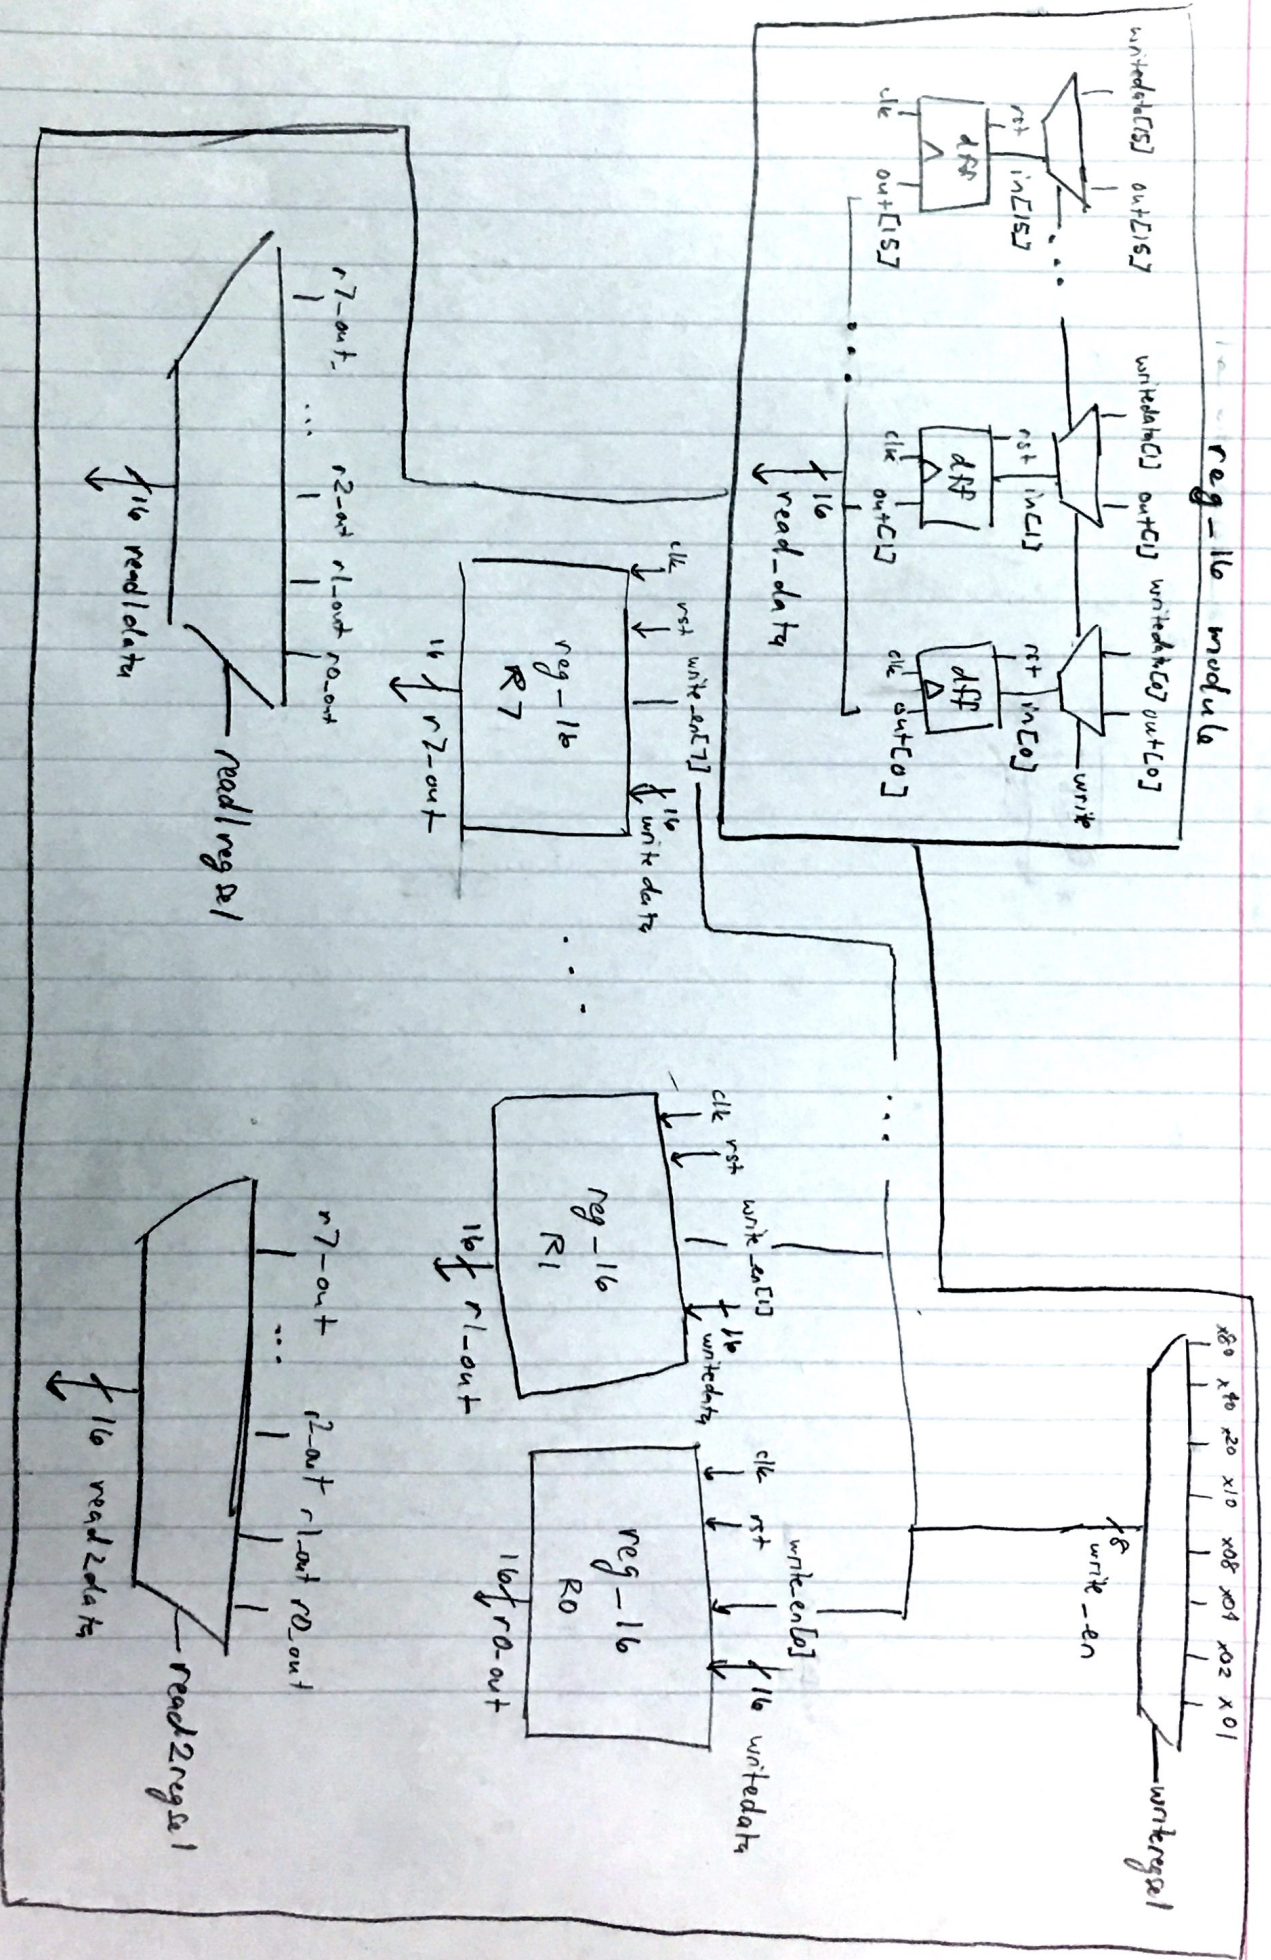 reg_16 module
writedata[15] out[15] writedata[1] out[1] writedata[0] out[0]
write
rst in[15] rst in[1] rst in[0]
dff dff dff
clk out[15] clk out[1] clk out[0]
16 read_data
x80 x40 x20 x10 x08 x04 x02 x01
writeregsel
8 write_en
clk rst write_en[7] 16 writedata
reg_16
R7
16 r7_out
clk rst write_en[1] 16 writedata
reg_16
R1
16 r1_out
clk rst write_en[0] 16 writedata
reg_16
R0
16 r0_out
r7_out ... r2_out r1_out r0_out
read1regsel
16 read1data
r7_out ... r2_out r1_out r0_out
read2regsel
16 read2data